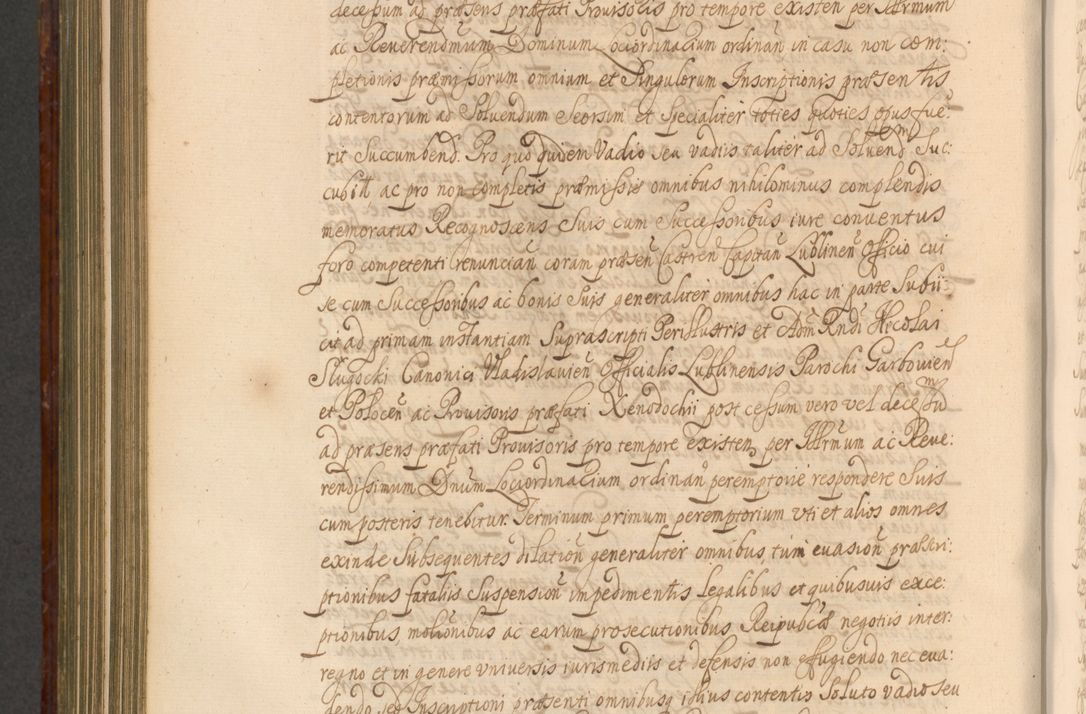 decessum ad præsens præfati Provisoris pro tempore existen per Illrmum
ac Reverendmium Dominum Lociordinacium ordinan̄ in casu non com:
pletionis præmissorum omnium et Singulorum Inscriptionis præsentis
contentorum ad Solvendum Seorsim et Specialiter toties quoties opus fue:
rit Succumbend. Pro quo quidem Vadio seu vadiis taliter ad Solvend Suc:
cubit ac pro non completis præmissis omnibus nihilominus complendis
memoratus Recognoscens Suis cum Successoribus iure conventus
foro competenti renuncian̄ coram præsen̄ Castren̄ Capitan̄ Lublinen̄ Officio cui
se cum Successoribus ac bonis Suis generaliter omnibus hac in parte Subii:
cit ad primam instantiam Suprascripti Perillustris et Adm Rndi Nicolai
Slugocki Canonici Vladislavien̄ Officialis Lublinensis Parochi Garbovien
et Polocen̄ ac Provisoris præfati Xenodochii post cessum vero vel decessum
ad præsens præfati Provisoris pro tempore existen, per Illrmum ac Reve:
rendissimum Dnum Lociordinacium ordinan̄ peremptorie respondere Suis
cum posteris tenebitur. Terminum primum peremptorium uti et alios omnes
exinde Subsequentes dilation̄ generaliter omnibus, tum evasion̄ præscri:
ptionibus fatalis Suspension̄ impedimentis Legalibus et quibusuis exce:
ptionibus motionibus ac earum prosecutionibus Reipublcæ negotiis inter:
regno et in genere universis iurismediis et defensis non effugiendo nec eva:
dendo sed Inscriptioni præsenti omnibusq illius contentis Soluto vadio seu